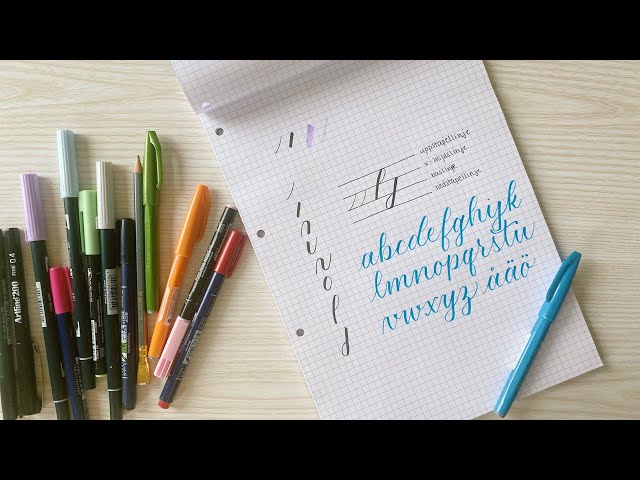 uppstapellinje
x-höjdslinje
baslinje
nedstapellinje
ly
abcdefghijk
lmnopqrstu
vwxyz åäö
Artline 200
0.4